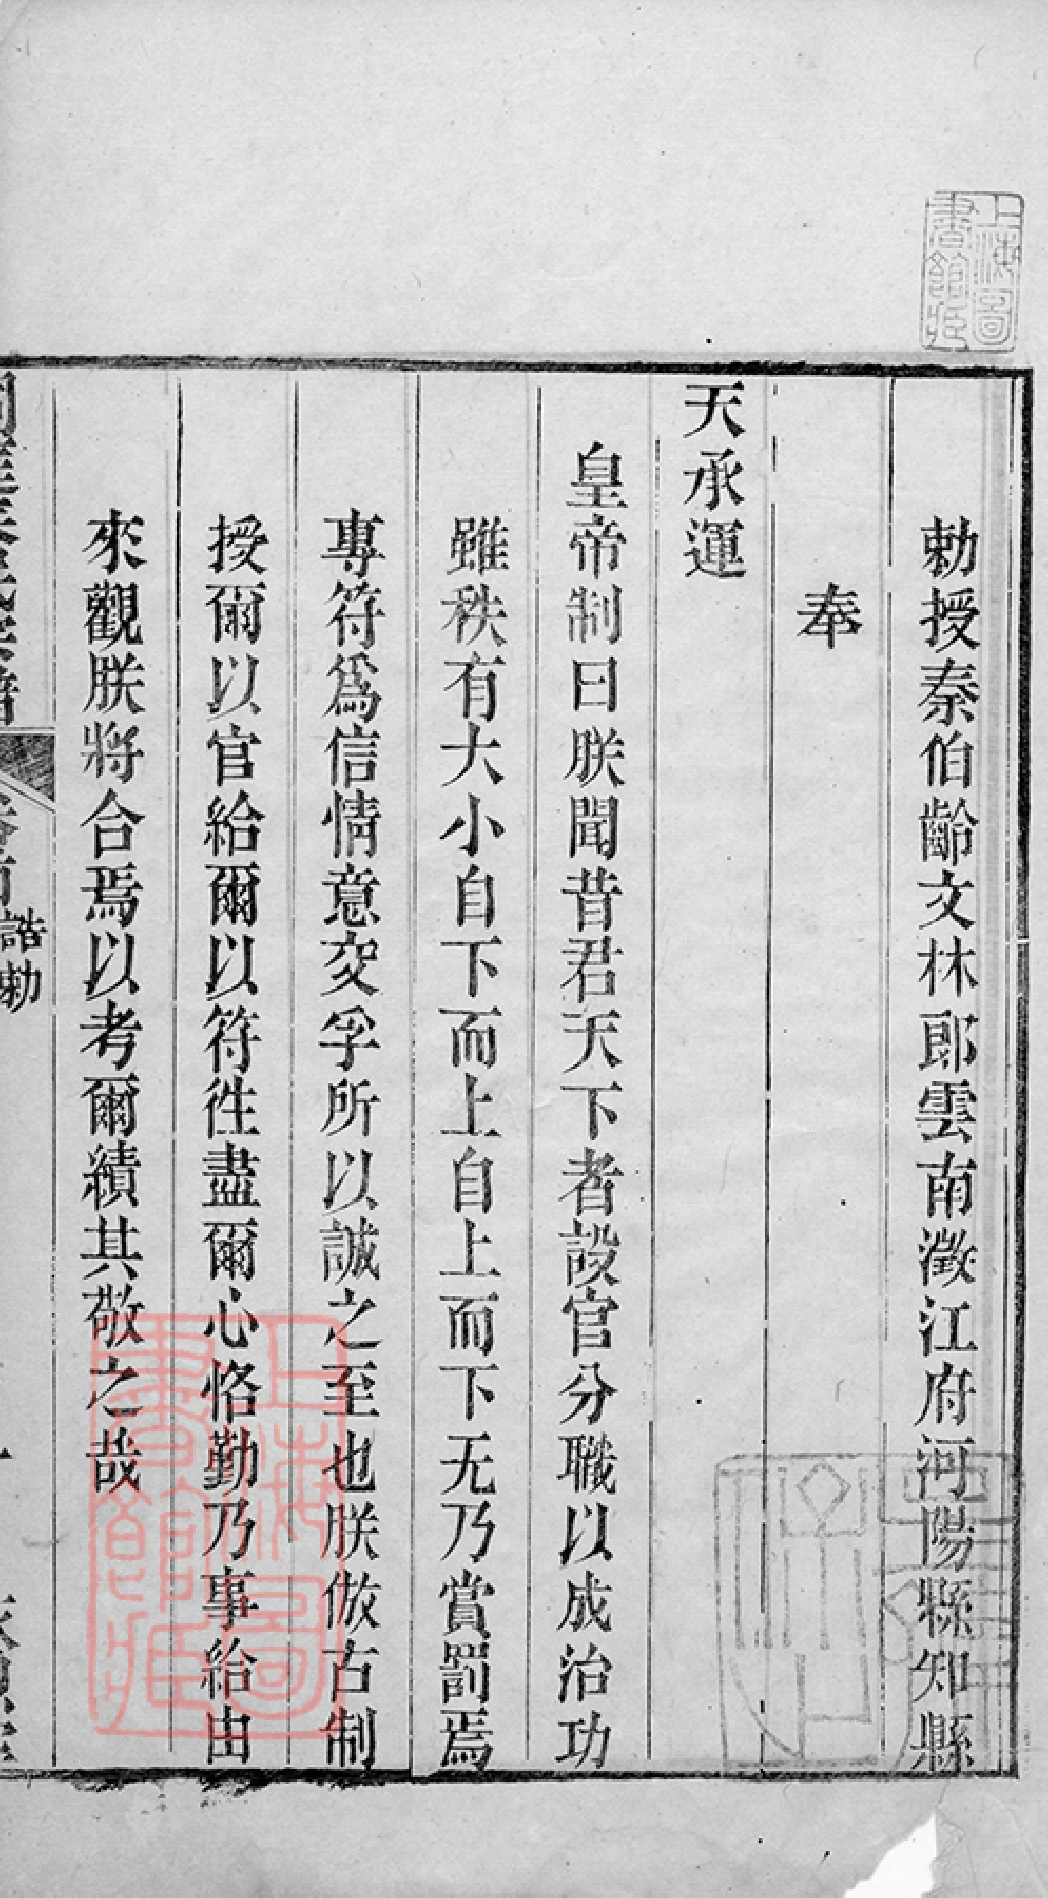 勅授秦伯齡文林郎雲南澂江府河陽縣知縣
奉
天承運
皇帝制曰朕聞昔君天下者設官分職以成治功
雖秩有大小自下而上自上而下无乃賞罰焉
專符爲信情意交孚所以誠之至也朕倣古制
授爾以官給爾以符徃盡爾心恪勤乃事給由
來觀朕將合焉以考爾績其敬之哉
卷首
誥勅
上海圖書館藏
上海圖書館藏